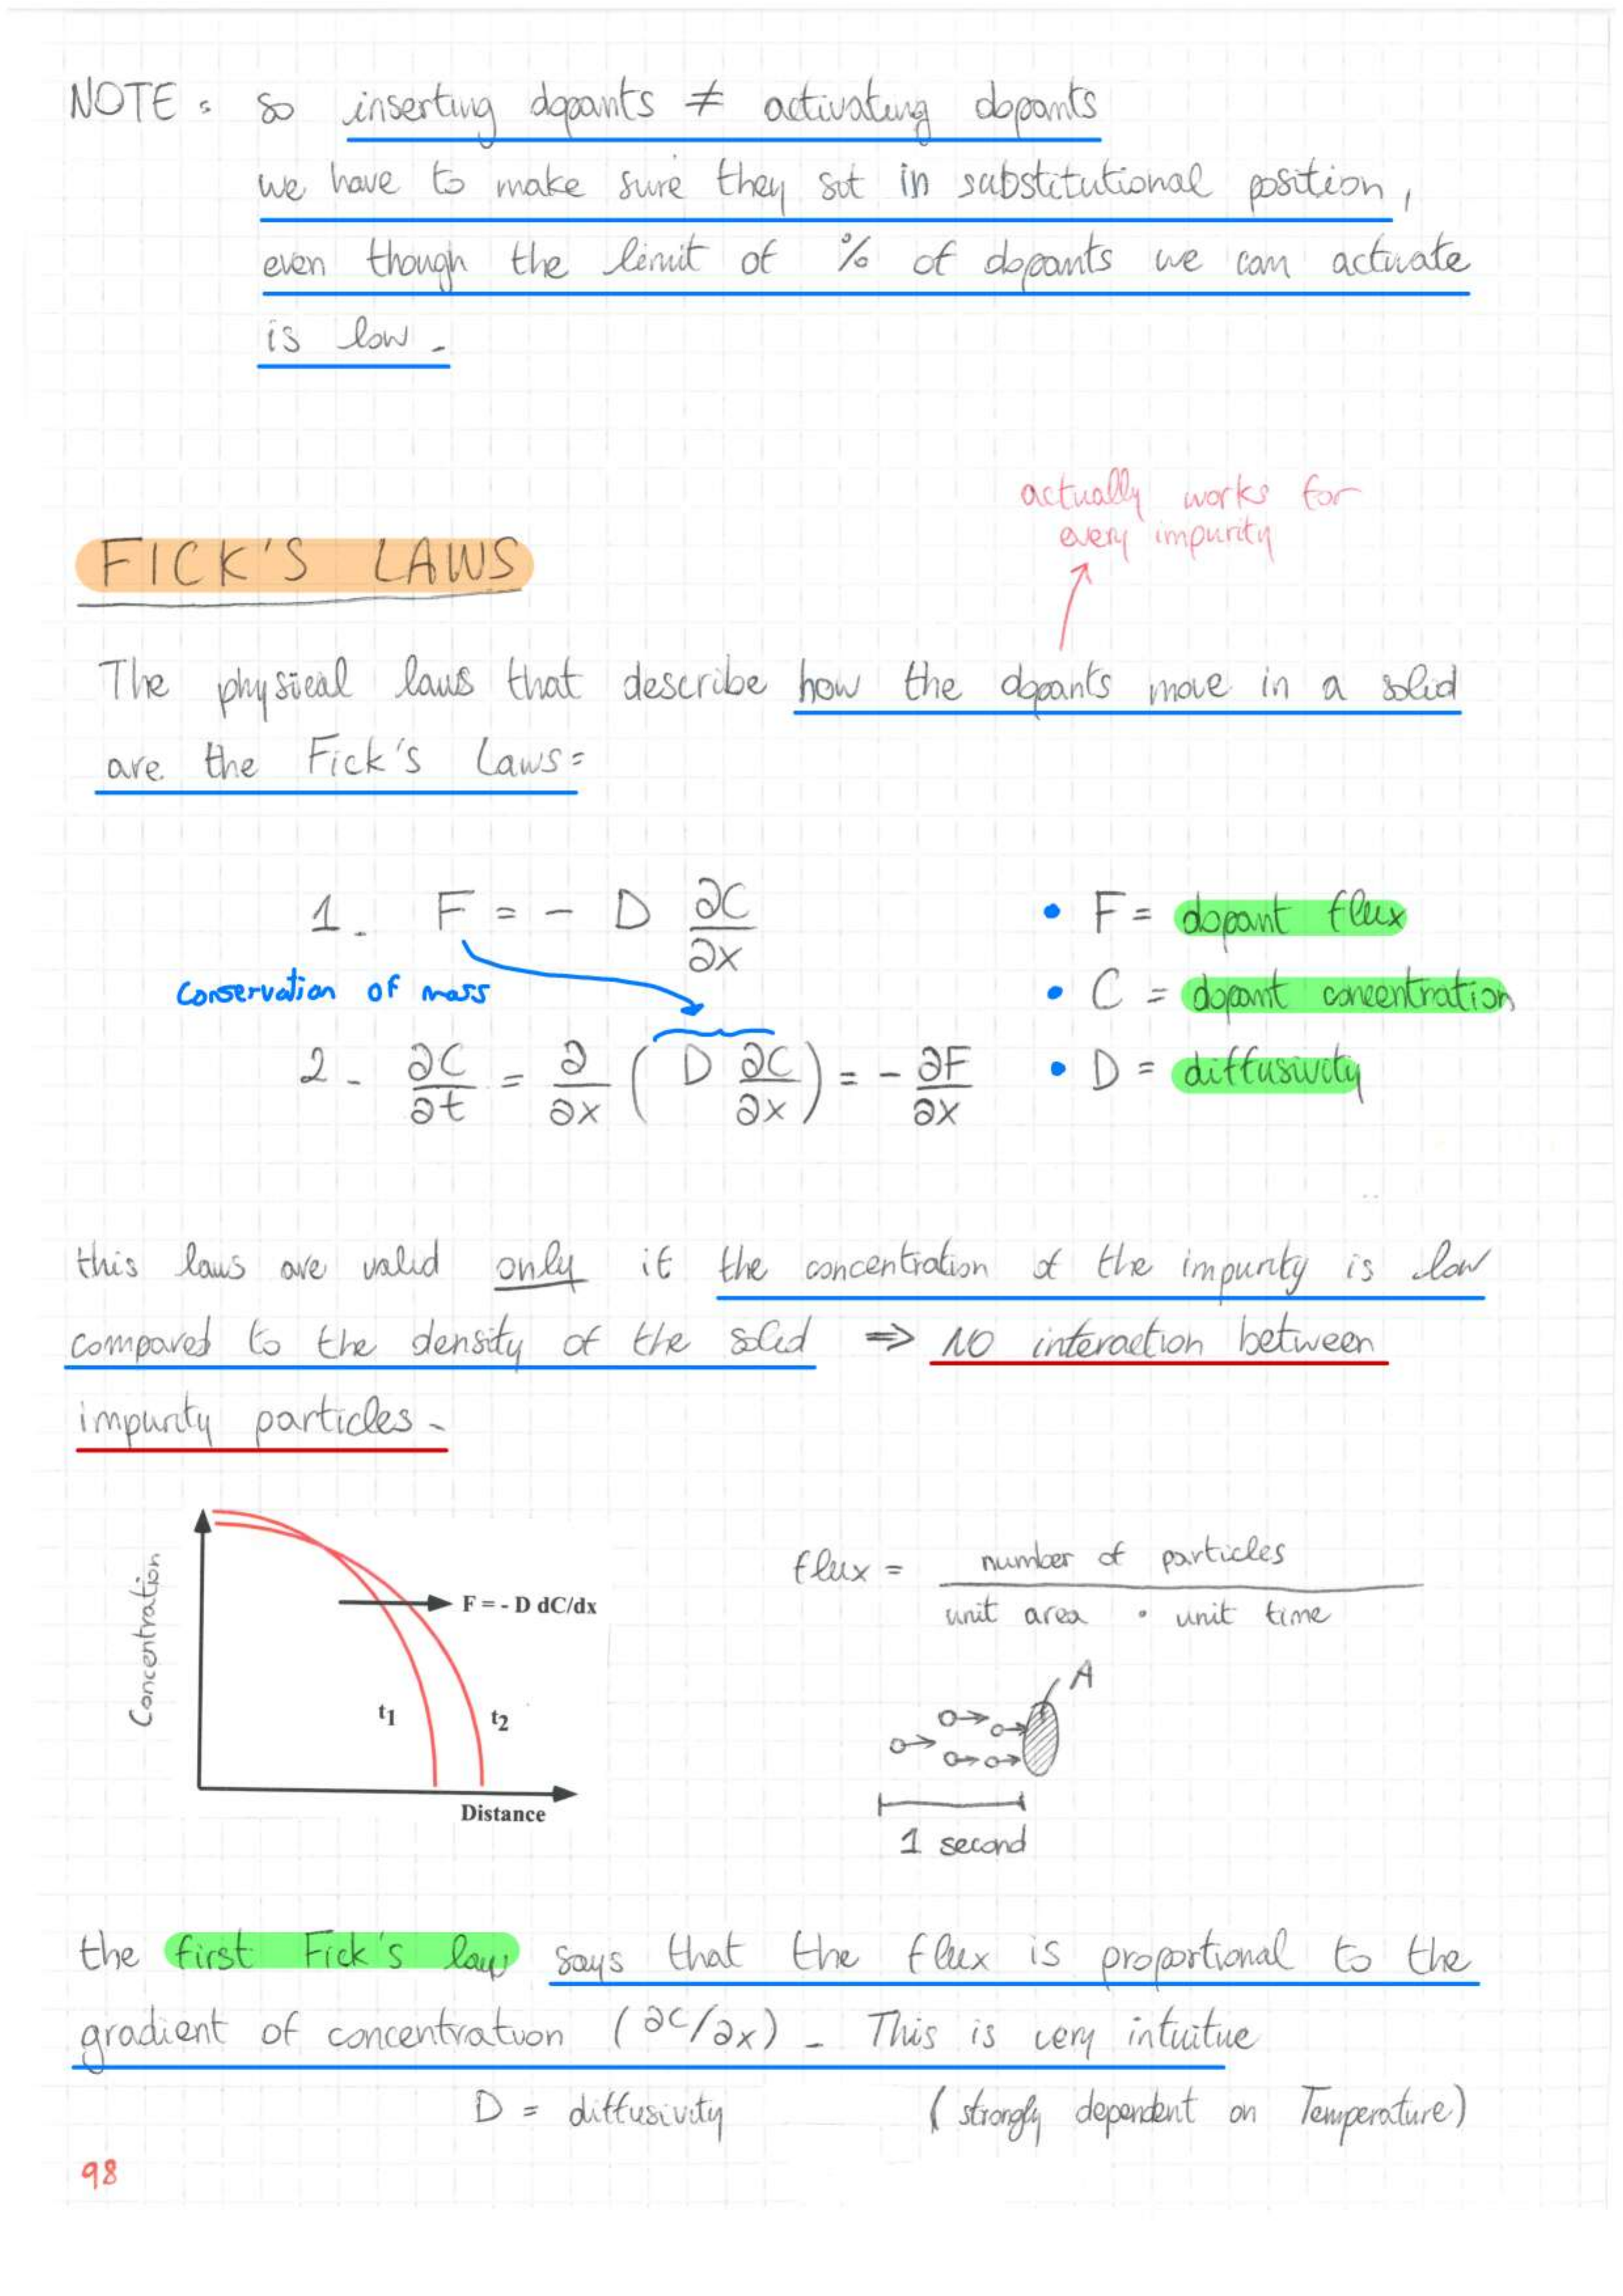 NOTE: so inserting dopants ≠ activating dopants
we have to make sure they sit in substitutional position,
even though the limit of % of dopants we can activate
is low.
actually works for
every impurity
FICK'S LAWS
The physical laws that describe how the dopants move in a solid
are the Fick's Laws:
1. F = - D ∂C/∂x
• F = dopant flux
conservation of mass
• C = dopant concentration
2. ∂C/∂t = ∂/∂x ( D ∂C/∂x ) = - ∂F/∂x
• D = diffusivity
this laws are valid only if the concentration of the impurity is low
compared to the density of the solid ⇒ NO interaction between
impurity particles.
Concentration
F = - D dC/dx
t1
t2
Distance
flux = number of particles
unit area · unit time
A
1 second
the first Fick's law says that the flux is proportional to the
gradient of concentration (∂C/∂x). This is very intuitive
D = diffusivity (strongly dependent on Temperature)
98